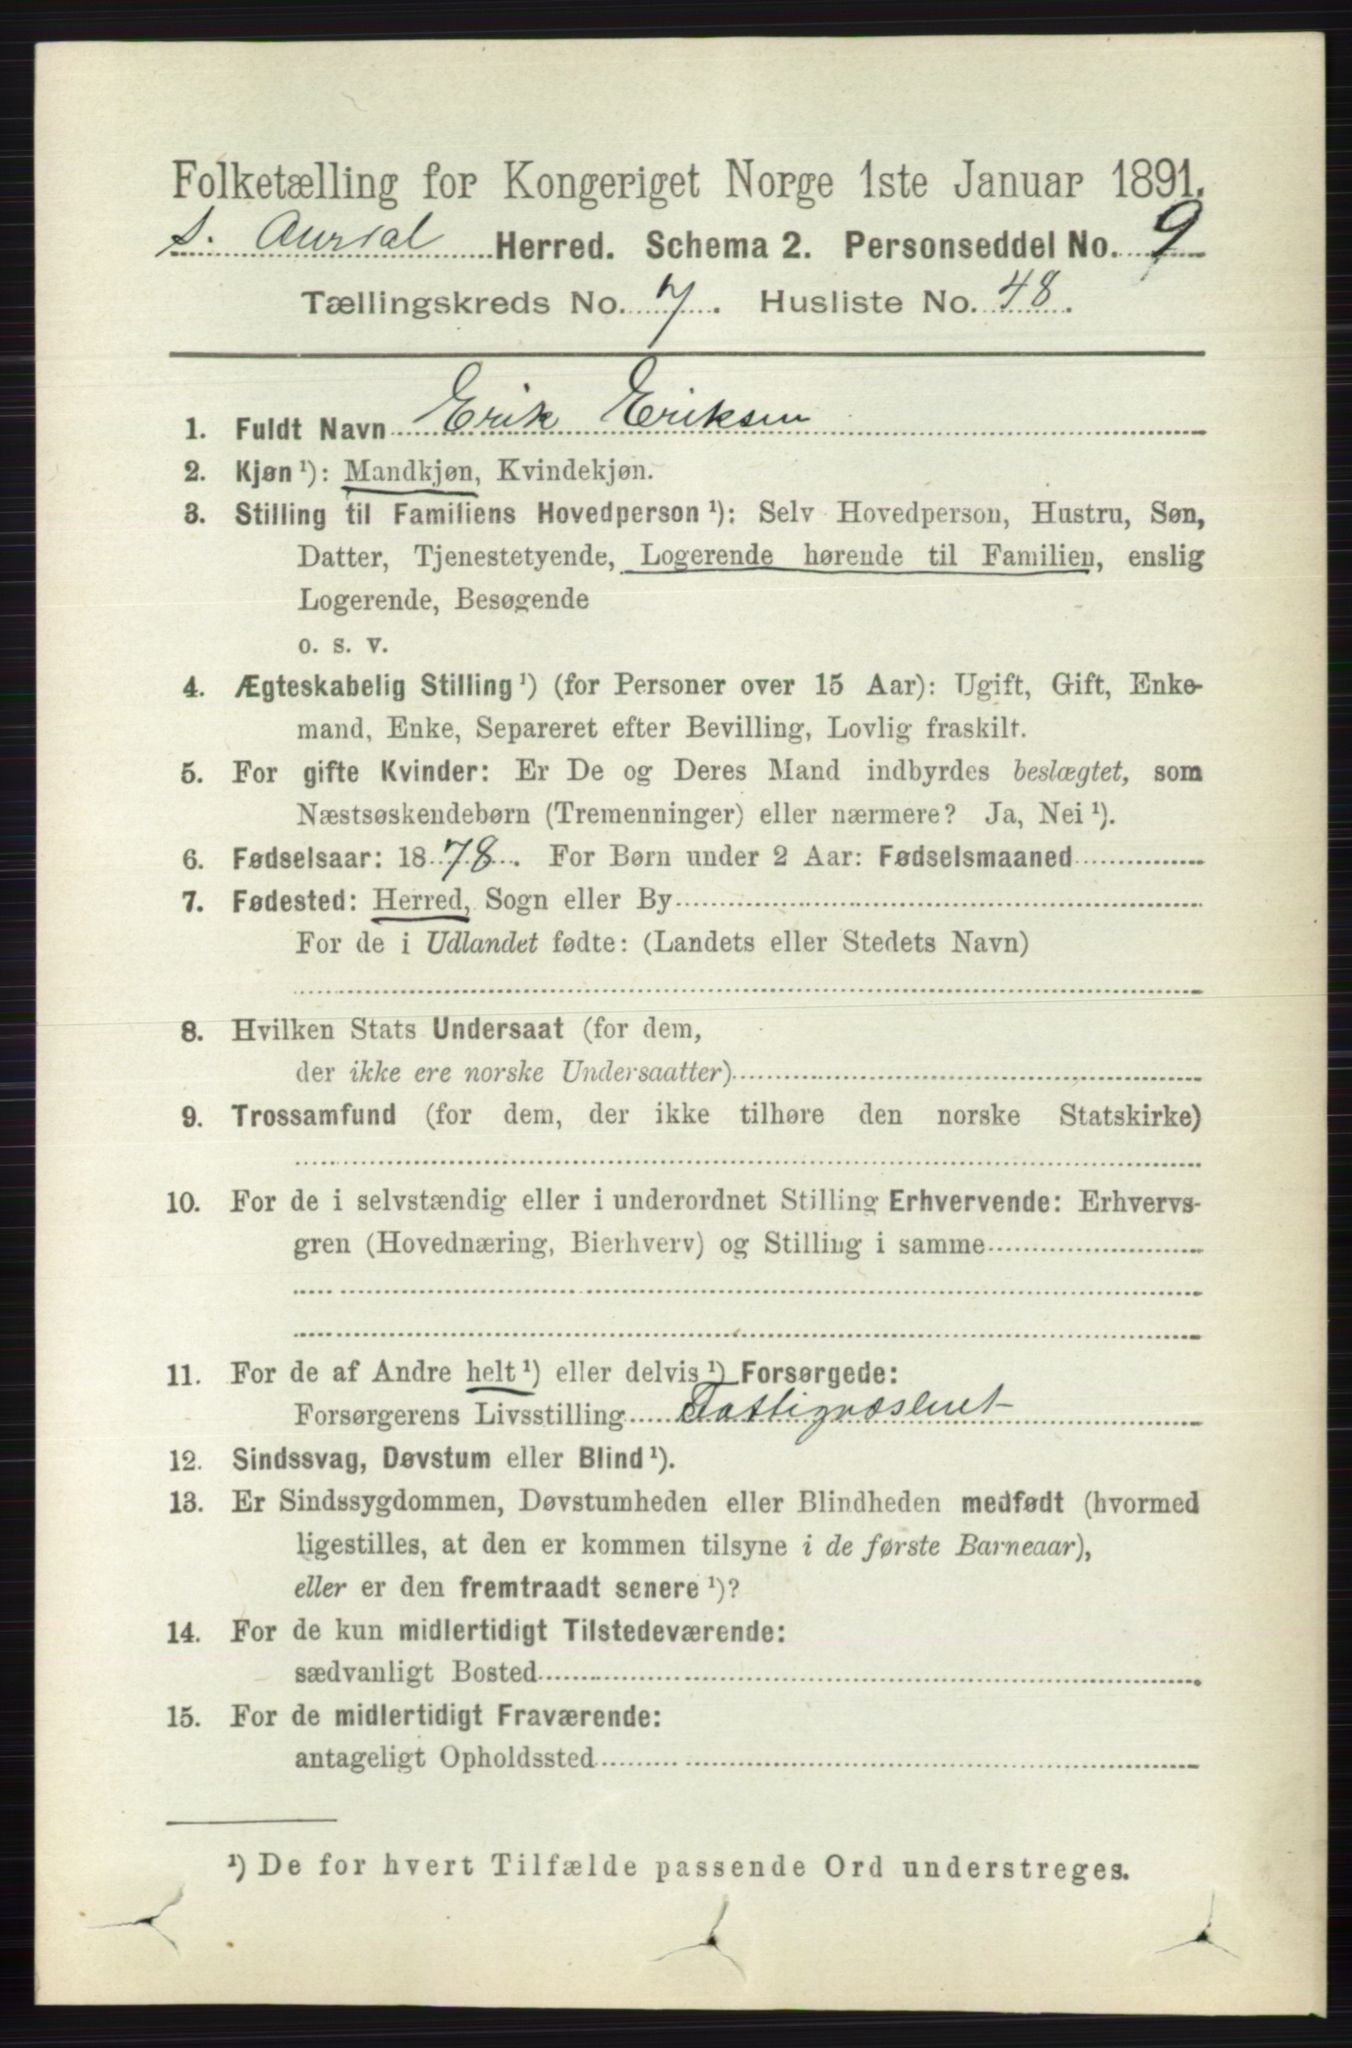 Folketælling for Kongeriget Norge 1ste Januar 1891.
S. Aurdal Herred. Schema 2. Personseddel No. 9
Tællingskreds No. 7. Husliste No. 48.
1. Fuldt Navn Erik Eriksen
2. Kjøn ¹): Mandkjøn, Kvindekjøn.
3. Stilling til Familiens Hovedperson ¹): Selv Hovedperson, Hustru, Søn,
Datter, Tjenestetyende, Logerende hørende til Familien, enslig
Logerende, Besøgende
o. s. v.
4. Ægteskabelig Stilling ¹) (for Personer over 15 Aar): Ugift, Gift, Enke-
mand, Enke, Separeret efter Bevilling, Lovlig fraskilt.
5. For gifte Kvinder: Er De og Deres Mand indbyrdes beslægtet, som
Næstsøskendebørn (Tremenninger) eller nærmere? Ja, Nei ¹).
6. Fødselsaar: 1878. For Børn under 2 Aar: Fødselsmaaned
7. Fødested: Herred, Sogn eller By
For de i Udlandet fødte: (Landets eller Stedets Navn)
8. Hvilken Stats Undersaat (for dem,
der ikke ere norske Undersaatter)
9. Trossamfund (for dem, der ikke tilhøre den norske Statskirke)
10. For de i selvstændig eller i underordnet Stilling Erhvervende: Erhvervs-
gren (Hovednæring, Bierhverv) og Stilling i samme
11. For de af Andre helt ¹) eller delvis ¹) Forsørgede:
Forsørgerens Livsstilling Fattigvæsenet
12. Sindssvag, Døvstum eller Blind ¹).
13. Er Sindssygdommen, Døvstumheden eller Blindheden medfødt (hvormed
ligestilles, at den er kommen tilsyne i de første Barneaar),
eller er den fremtraadt senere ¹)?
14. For de kun midlertidigt Tilstedeværende:
sædvanligt Bosted
15. For de midlertidigt Fraværende:
antageligt Opholdssted
¹) De for hvert Tilfælde passende Ord understreges.